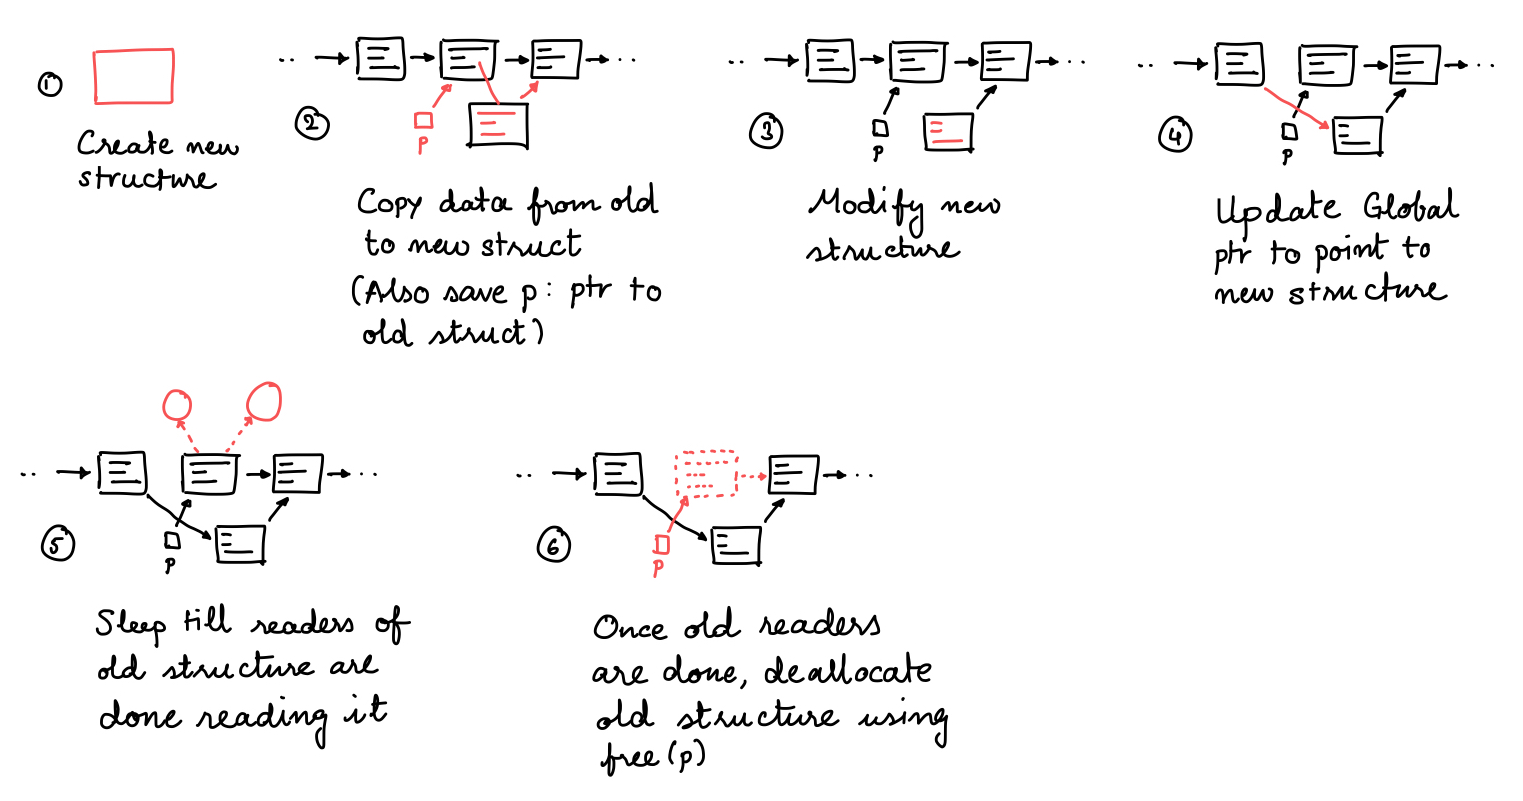 1
Create new
structure
2
P
Copy data from old
to new struct
(Also save p: ptr to
old struct)
3
P
Modify new
structure
4
P
Update Global
ptr to point to
new structure
5
P
Sleep till readers of
old structure are
done reading it
6
P
Once old readers
are done, deallocate
old structure using
free(p)